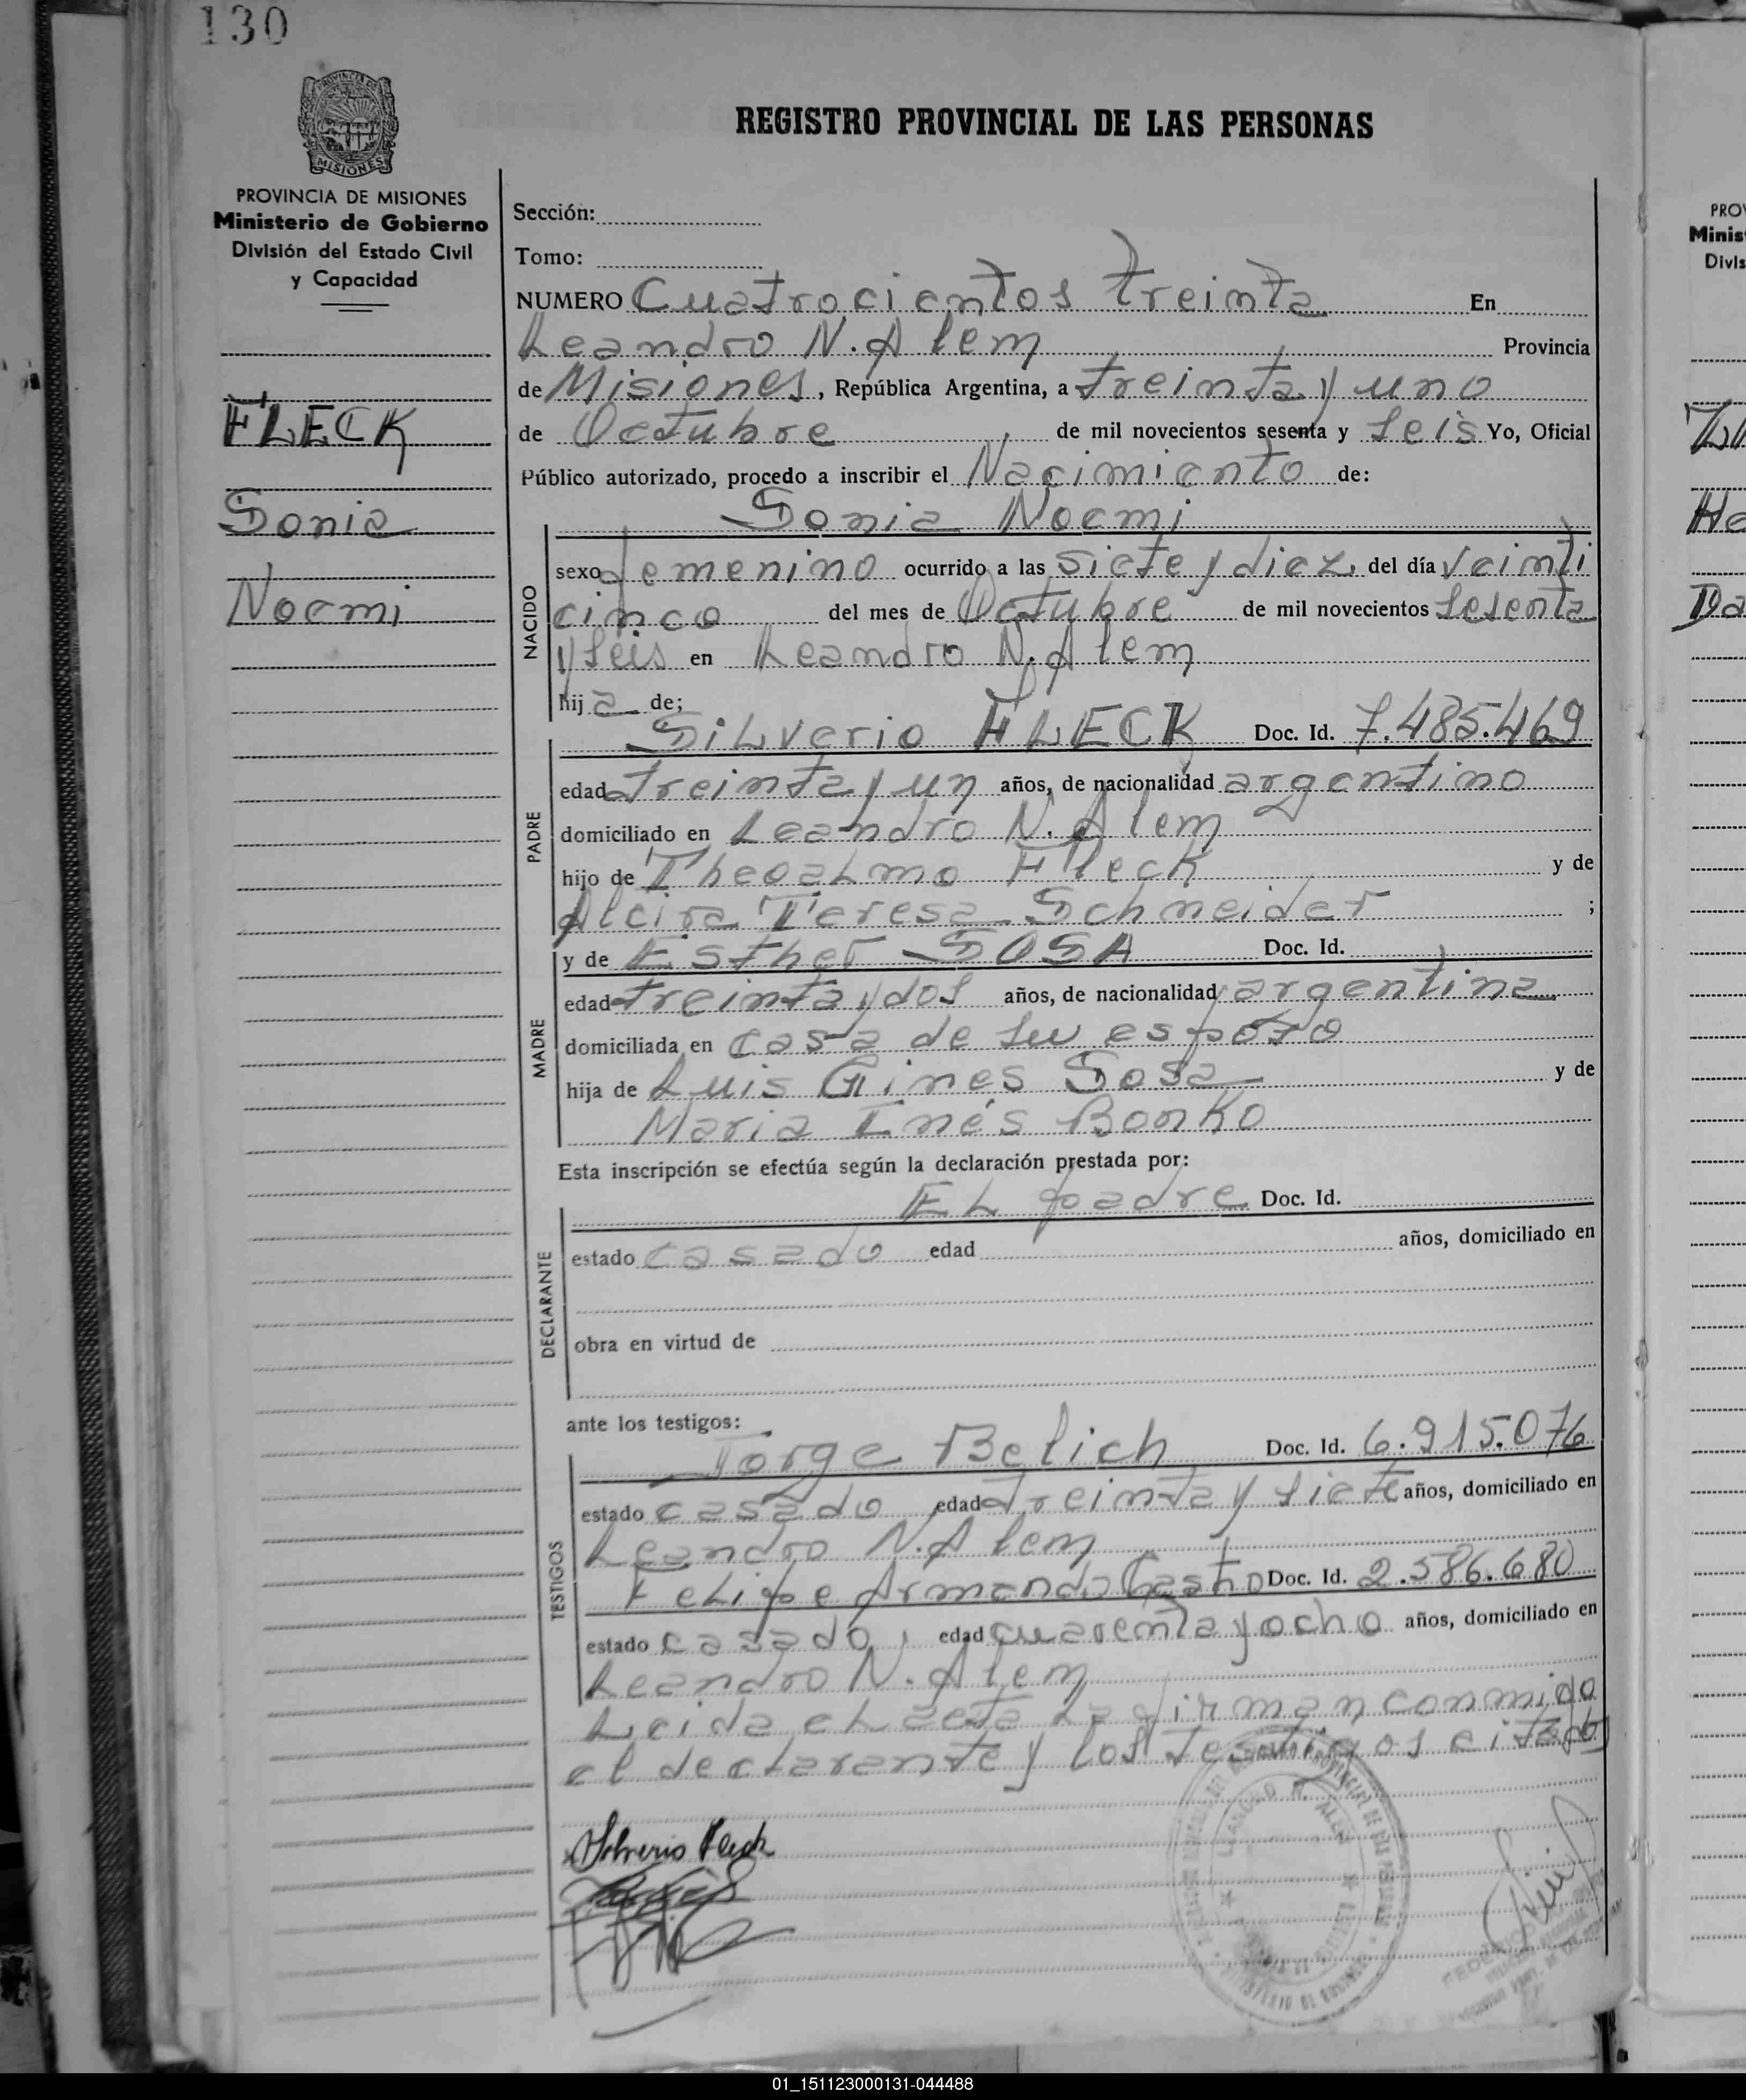 130
PROVINCIA DE MISIONES
PROVINCIA DE MISIONES
Ministerio de Gobierno
División del Estado Civil
y Capacidad
FLECK
Sonia
Noemi
REGISTRO PROVINCIAL DE LAS PERSONAS
Sección:
Tomo:
NUMERO Cuatrocientos treinta En
Leandro N. Alem Provincia
de Misiones, República Argentina, a treinta y uno
de Octubre de mil novecientos sesenta y seis Yo, Oficial
Público autorizado, procedo a inscribir el Nacimiento de:
Sonia Noemi
NACIDO
sexo femenino ocurrido a las siete y diez del día veinti
cinco del mes de Octubre de mil novecientos sesenta
y seis en Leandro N. Alem
hija de;
PADRE
Silverio FLECK Doc. Id. 7.485.469
edad treinta y un años, de nacionalidad argentino
domiciliado en Leandro N. Alem
hijo de Theoahmo Fleck y de
Alcira Teresa Schneider ;
MADRE
y de Esther SOSA Doc. Id.
edad treinta y dos años, de nacionalidad argentina
domiciliada en casa de su esposo
hija de Luis Gines Sosa y de
Maria Inés Bonko
Esta inscripción se efectúa según la declaración prestada por:
DECLARANTE
El padre Doc. Id.
estado casado edad años, domiciliado en
obra en virtud de
ante los testigos:
TESTIGOS
Jorge Belich Doc. Id. 6.915.076
estado casado edad treinta y siete años, domiciliado en
Leandro N. Alem
Felipe Armando Castro Doc. Id. 2.586.680
estado casado, edad cuarenta y ocho años, domiciliado en
Leandro N. Alem
Leida el acta la firman conmigo
el declarante y los testigos citado
Silverio Fleck
LEANDRO N. ALEM
PROV
Minis
Divis
He
Da
01_151123000131-044488